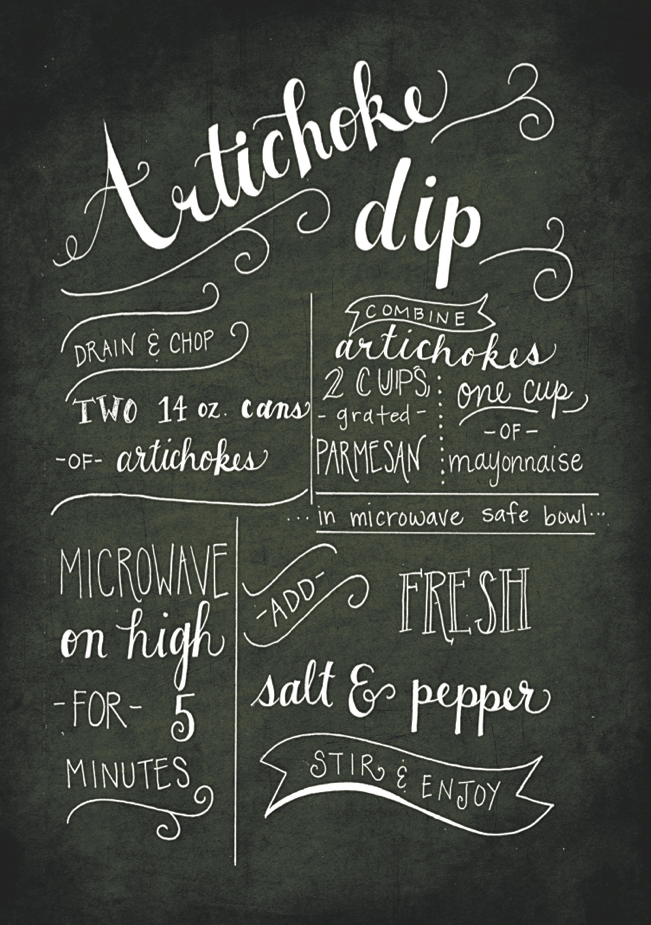 Artichoke
dip
DRAIN & CHOP
TWO 14 oz. cans
-OF- artichokes
COMBINE
artichokes
2 CUPS
- grated -
PARMESAN
one cup
-OF-
mayonnaise
...in microwave safe bowl...
MICROWAVE
on high
-FOR- 5
MINUTES
-ADD-
FRESH
salt & pepper
STIR & ENJOY